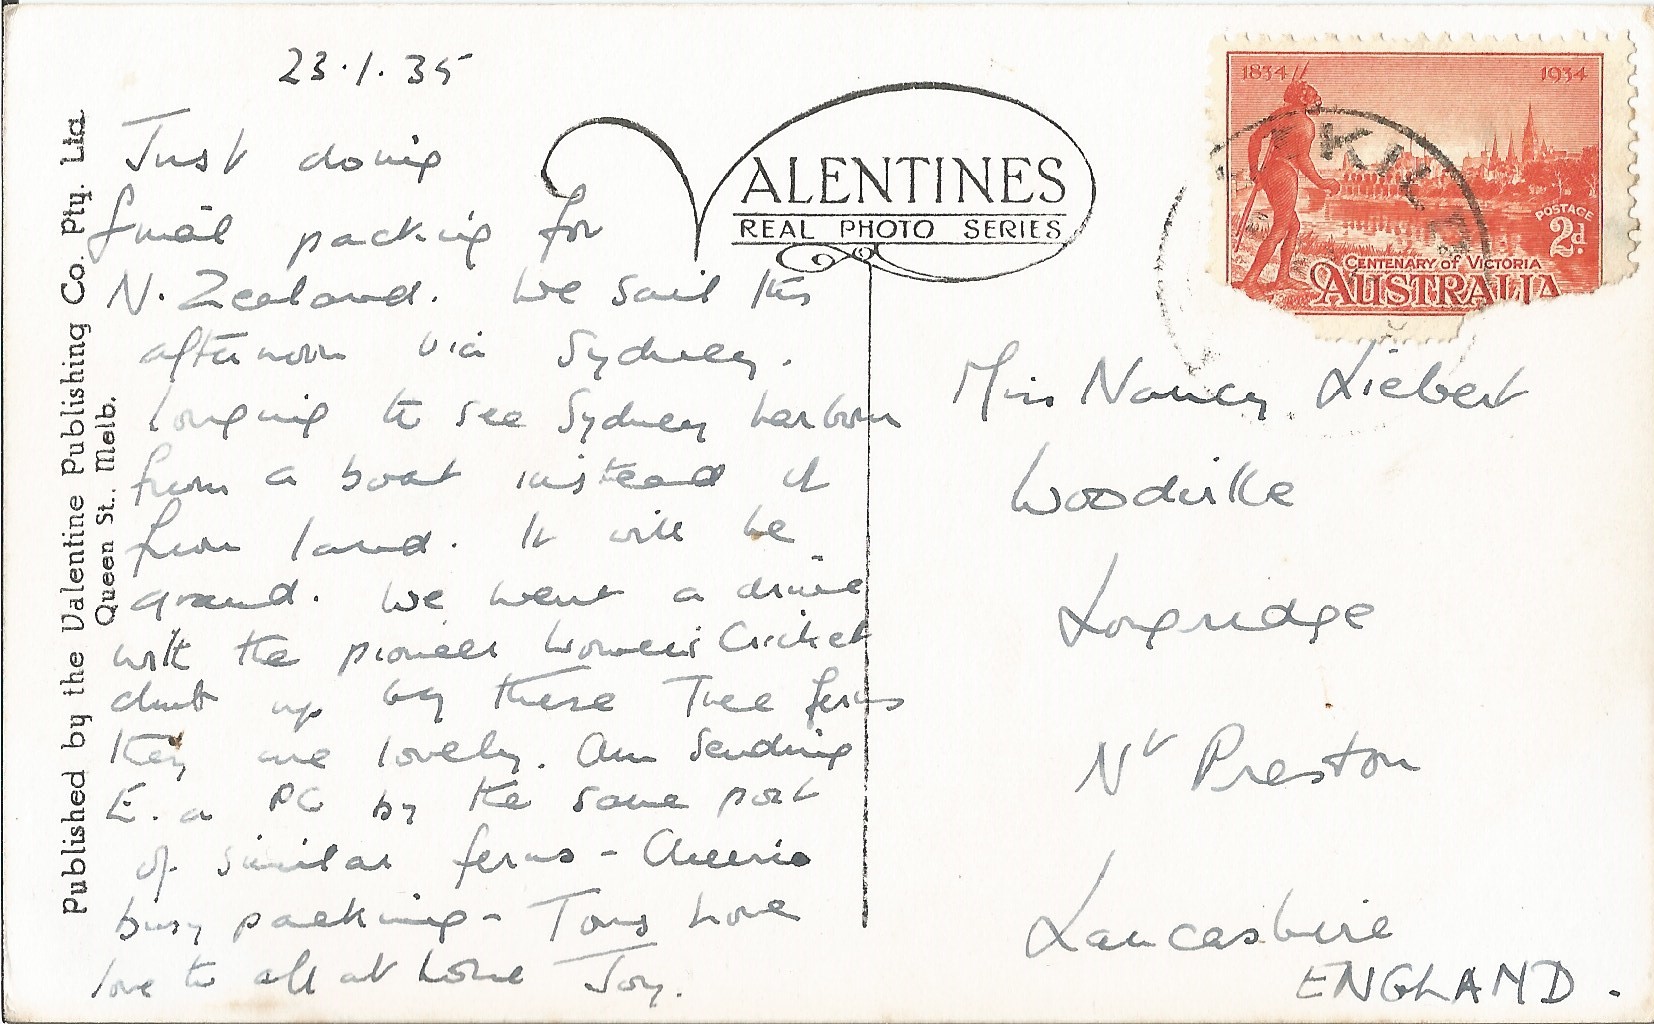 23.1.35
Just doing
final packing for
N. Zealand. We sail this
afternoon via Sydney.
longing to see Sydney harbour
from a boat instead of
from land. It will be
grand. We went a drive
with the pioneer Women's Cricket
club up by these Tree ferns
They are lovely. Am sending
E. a PC by the same post
of similar ferns - Cheerio
busy packing - Tons love
love to all at home Joy.
Published by the Valentine Publishing Co. Pty. Ltd.
Queen St., Melb.
VALENTINES
REAL PHOTO SERIES
1834 1934
POSTAGE
2d.
CENTENARY of VICTORIA
AUSTRALIA
Miss Nancy Liebert
Woodville
Longridge
Nr Preston
Lancashire
ENGLAND.